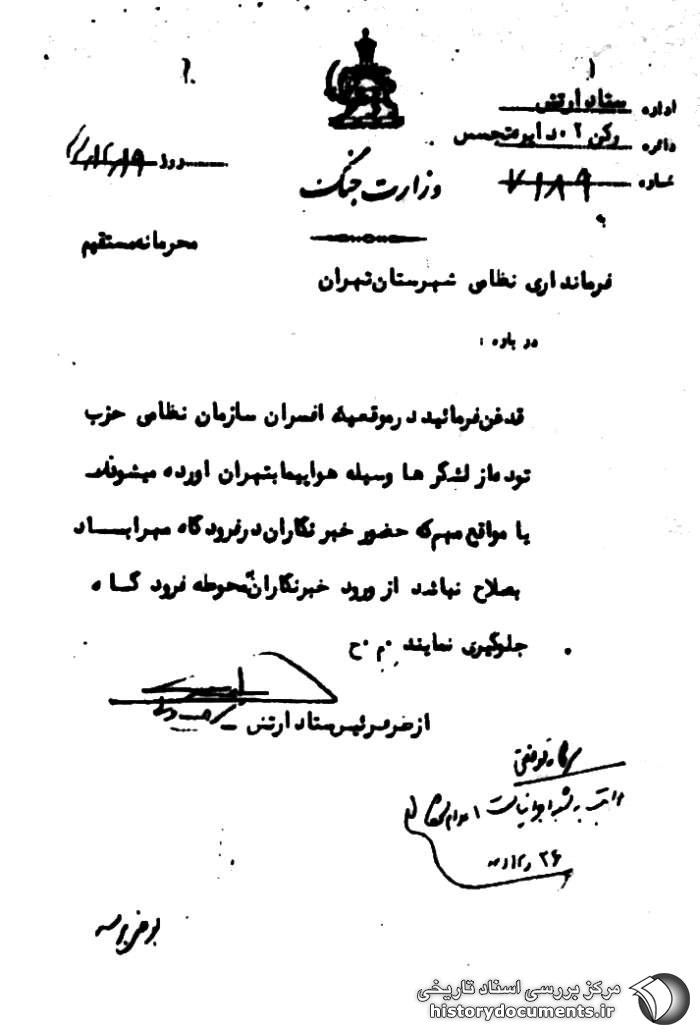 اداره ستاد ارتش
دائره رکن ۲ - دایره تجسس
شماره ۷۱۸۹
روز
وزارت جنگ
به
محرمانه مستقیم
فرمانداری نظامی شهرستان تهران
درباره :
قدغن فرمائید در موقعیکه افسران سازمان نظامی حزب
توده از لشگر ها وسیله هواپیما بتهران آورده میشوند
یا مواقع مهم که حضور خبرنگاران در فرودگاه مهراباد
بصلاح نباشد از ورود خبرنگاران بمحوطه فرودگاه
جلوگیری نمایند م.ح
از طرف رئیس ستاد ارتش
مرکز بررسی اسناد تاریخی
historydocuments.ir